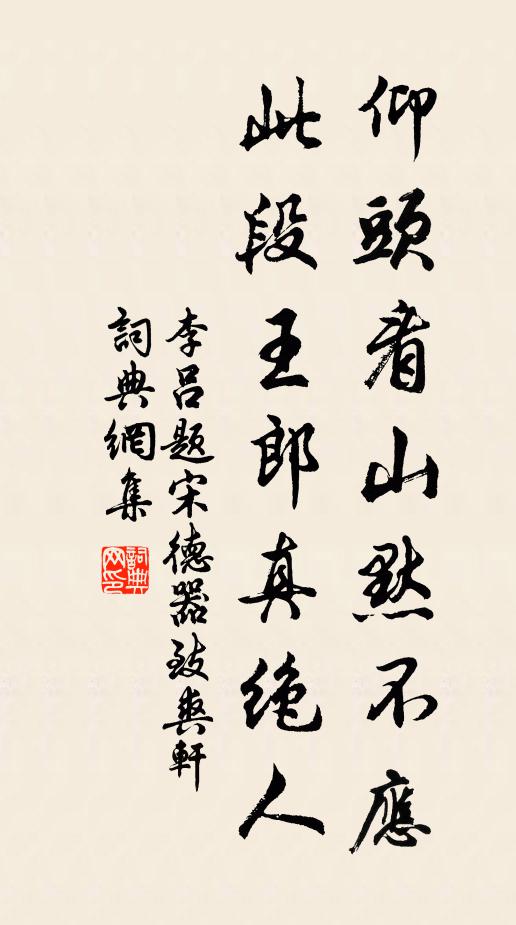 仰頭看山默不應
此段王郎真絕人
李呂題宋德器致爽軒
詞典網集
詞典网印